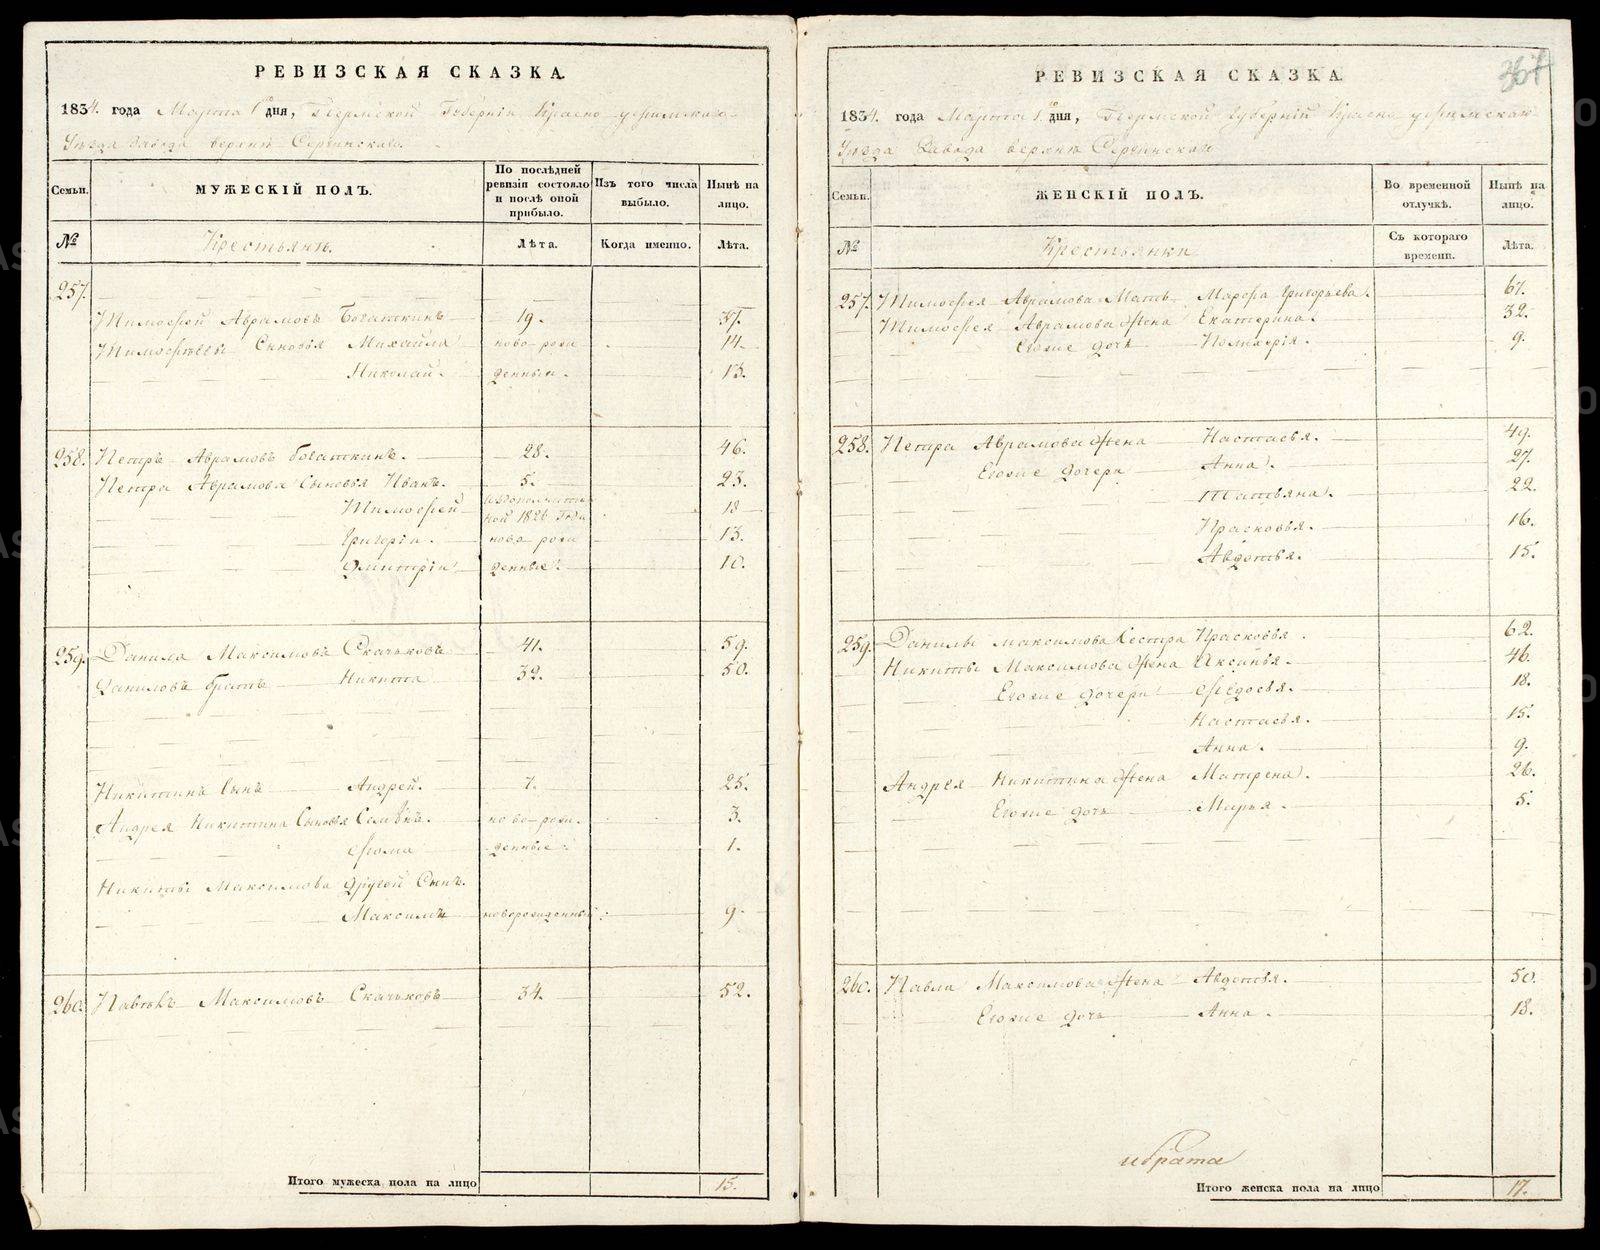 РЕВИЗСКАЯ СКАЗКА.
1834. года Марта 1го дня, Пермской Губерніи Красно уфимскаго
Уѣзда Завода верхнѣ Сергинскаго.
Семьи.
МУЖЕСКІЙ ПОЛЪ.
По послѣдней ревизіи состояло и послѣ оной прибыло.
Изъ того числа выбыло.
Нынѣ на лицо.
№
Крестьянъ.
Лѣта.
Когда именно.
Лѣта.
257.
Тимофей Аврамовъ Богаткинъ 19. 37.
Тимофѣевы Сыновья Михайла ново рож 14.
Николай. денныи. 13.
258. Петръ Аврамовъ богаткинъ. 28. 46.
Петра Аврамова Сыновья Иванъ. 5. 23.
Тимофей 18
кой 1826 Года
Григорій. ново рож 13.
Дмитрій денные. 10.
259. Данила Максимовъ Скачьковъ 41. 59.
Даниловъ братъ Никита 32. 50.
Никитинъ сынъ Андрей. 7. 25.
Андрея Никитина Сыновья Семѣнъ. ново рож. 3.
Фома денные 1.
Никиты Максимова другой Сынъ.
Максимъ новорожденный. 9.
260. Павѣлъ Максимовъ Скачьковъ 34. 52.
Итого мужеска пола на лицо 15.
367
РЕВИЗСКАЯ СКАЗКА.
1834. года Марта 1го дня, Пермской Губерніи Красно уфимскаго
Уѣзда Завода верхнѣ Сергинскаго
Семьи.
ЖЕНСКІЙ ПОЛЪ.
Во временной отлучкѣ.
Нынѣ на лицо.
№
Крестьянки
Съ котораго времени.
Лѣта.
257. Тимофея Аврамова Мать Марфа Григорьева. 67.
Тимофея Аврамова Жена Екатерина. 32.
Егоже дочь Пелихерія. 9.
258. Петра Аврамова Жена Настасья. 49.
Егоже дочери Анна. 27.
Татьяна. 22.
Прасковья. 16.
Авдотья. 15.
259. Данилы максимова Сестра Прасковья. 62.
Никиты Максимова Жена Аксинья. 46.
Егоже дочери Федосья. 18.
Настасья. 15.
Анна. 9.
Андрея Никитина Жена Матрена. 26.
Егоже дочь Марья. 5.
260. Павла Максимова Жена Авдотья. 50.
Егоже дочь Анна. 18.
и брата
Итого женска пола на лицо 17.